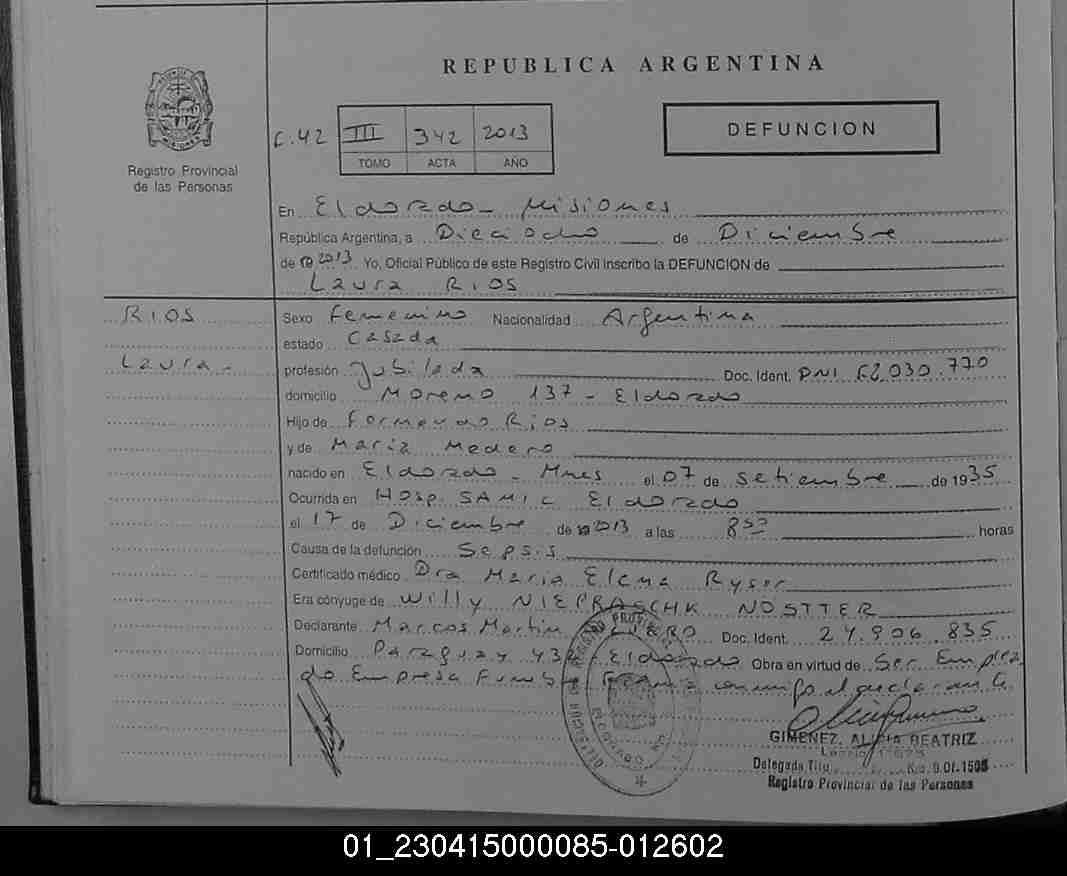 REPUBLICA ARGENTINA
Registro Provincial
de las Personas
C.42 III 342 2013
TOMO ACTA AÑO
DEFUNCION
En Eldorado - Misiones
República Argentina, a Dieciocho de Diciembre
de 2013 Yo, Oficial Público de este Registro Civil inscribo la DEFUNCION de
Laura Rios
RIOS
Laura.-
Sexo Femenino Nacionalidad Argentina
estado Casada
profesión Jubilada Doc. Ident. DNI F2.930.770
domicilio Moreno 137 - Eldorado
Hijo de Fernando Rios
y de Maria Medero
nacido en Eldorado - Mnes el 07 de setiembre de 1935
Ocurrida en Hosp. SAMIC Eldorado
el 17 de Diciembre de 2013 a las 8:50 horas
Causa de la defunción Sepsis
Certificado médico Dra Maria Elena Ryser
Era cónyuge de Willy NIEPRASCHK NOSTTER
Declarante Marcos Martin Doc. Ident. 24.906.835
Domicilio Paraguay Eldorado Obra en virtud de Ser Emplea
do Empresa Funebre conmigo el declarante
GIMENEZ, ALICIA BEATRIZ
Delegada Titu
Registro Provincial de las Personas
01_230415000085-012602